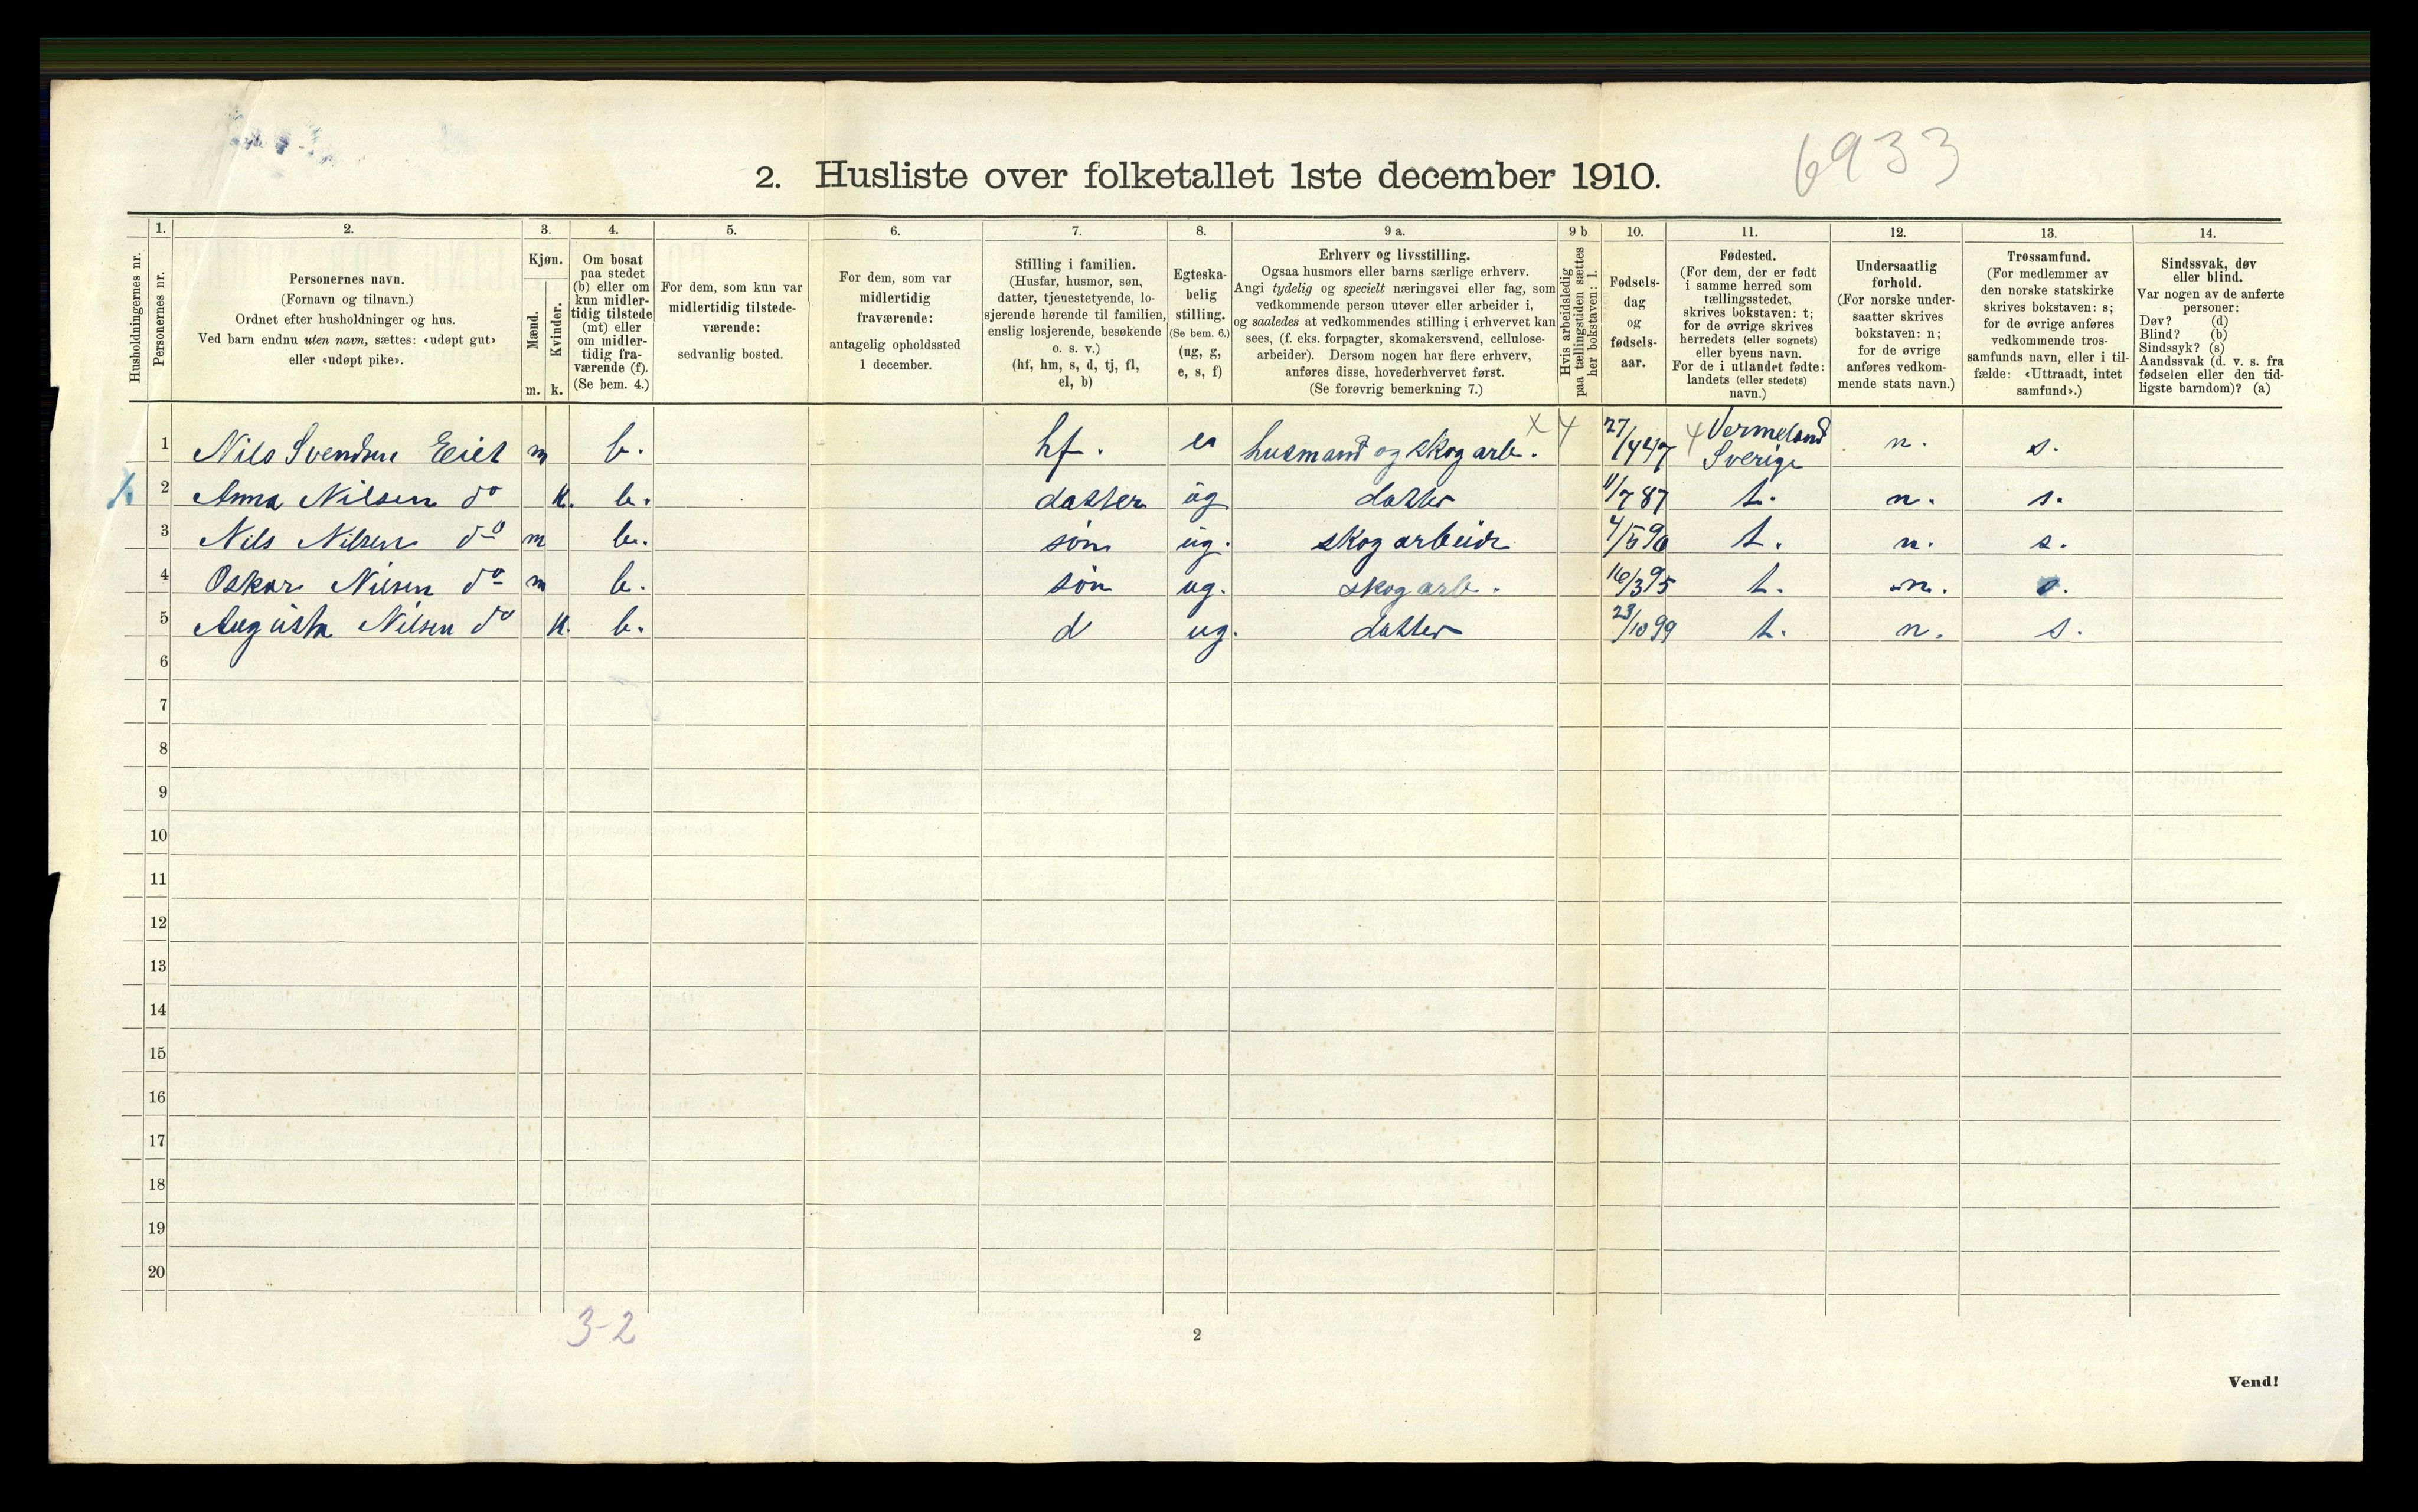 6933
2. Husliste over folketallet 1ste december 1910.
Husholdningernes nr.
1.
Personernes nr.
2.
Personernes navn.
(Fornavn og tilnavn.)
Ordnet efter husholdninger og hus.
Ved barn endnu uten navn, sættes: «udøpt gut»
eller «udøpt pike».
3.
Kjøn.
Mænd.
Kvinder.
m. k.
4.
Om bosat
paa stedet
(b) eller om
kun midler-
tidig tilstede
(mt) eller
om midler-
tidig fra-
værende (f).
(Se bem. 4.)
5.
For dem, som kun var
midlertidig tilstede-
værende:
sedvanlig bosted.
6.
For dem, som var
midlertidig
fraværende:
antagelig opholdssted
1 december.
7.
Stilling i familien.
(Husfar, husmor, søn,
datter, tjenestetyende, lo-
sjerende hørende til familien,
enslig losjerende, besøkende
o. s. v.)
(hf, hm, s, d, tj, fl,
el, b)
8.
Egteska-
belig
stilling.
(Se bem. 6.)
(ug, g,
e, s, f)
9 a.
Erhverv og livsstilling.
Ogsaa husmors eller barns særlige erhverv.
Angi tydelig og specielt næringsvei eller fag, som
vedkommende person utøver eller arbeider i,
og saaledes at vedkommendes stilling i erhvervet kan
sees, (f. eks. forpagter, skomakersvend, cellulose-
arbeider). Dersom nogen har flere erhverv,
anføres disse, hovederhvervet først.
(Se forøvrig bemerkning 7.)
9 b
Hvis arbeidsledig
paa tællingstiden sættes
her bokstaven: l.
10.
Fødsels-
dag
og
fødsels-
aar.
11.
Fødested.
(For dem, der er født
i samme herred som
tællingsstedet,
skrives bokstaven: t;
for de øvrige skrives
herredets (eller sognets)
eller byens navn.
For de i utlandet fødte:
landets (eller stedets)
navn.)
12.
Undersaatlig
forhold.
(For norske under-
saatter skrives
bokstaven: n;
for de øvrige
anføres vedkom-
mende stats navn.)
13.
Trossamfund.
(For medlemmer av
den norske statskirke
skrives bokstaven: s;
for de øvrige anføres
vedkommende tros-
samfunds navn, eller i til-
fælde: «Uttraadt, intet
samfund».)
14.
Sindssvak, døv
eller blind.
Var nogen av de anførte
personer:
Døv? (d)
Blind? (b)
Sindssyk? (s)
Aandssvak (d. v. s. fra
fødselen eller den tid-
ligste barndom)? (a)
1 Nils Svendsen Eiet m b. hf. e husmand og skog arb. x 4 27/4 47 Vermeland Sverige n. s.
2 Anna Nilsen do k. b. datter ug datter 11/7 87 t. n. s.
3 Nils Nilsen do m b. søn ug. skog arbeider 4/5 90 t. n. s.
4 Oskar Nilsen do m b. søn ug. skog arb. 16/3 95 t. n. s.
5 Augusta Nilsen do k. b. d ug. datter 23/10 99 t. n. s.
6
7
8
9
10
11
12
13
14
15
16
17
18
19
20
3-2
2
Vend!